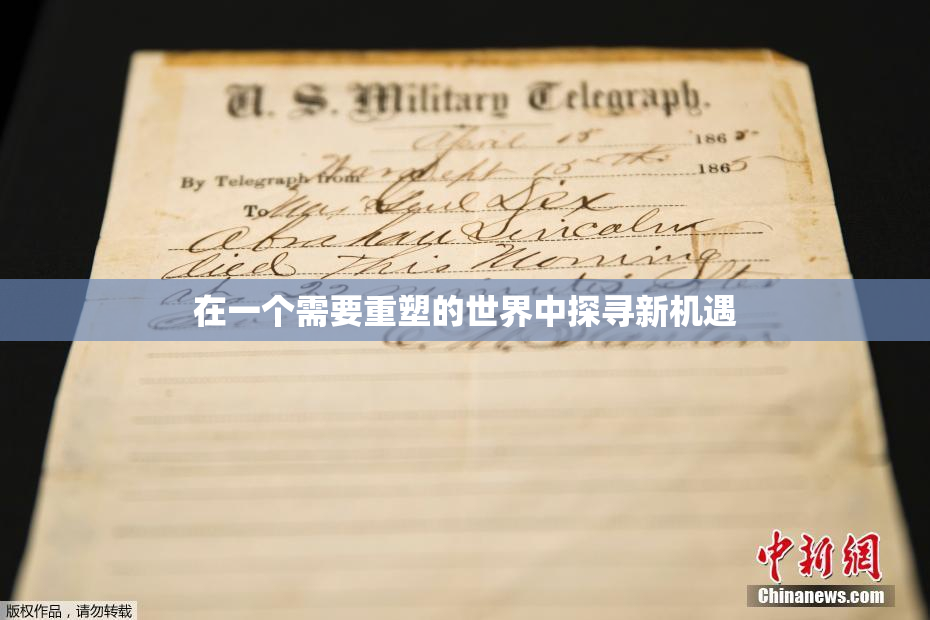 U. S. Military Telegraph.
April 15 1865
By Telegraph from Wash Dept 15th 1865
To Maj Genl Dix
Abraham Lincoln
died This Morning
at 22 minutes after
在一个需要重塑的世界中探寻新机遇
E. M. Stanton
中新网
Chinanews.com
版权作品，请勿转载